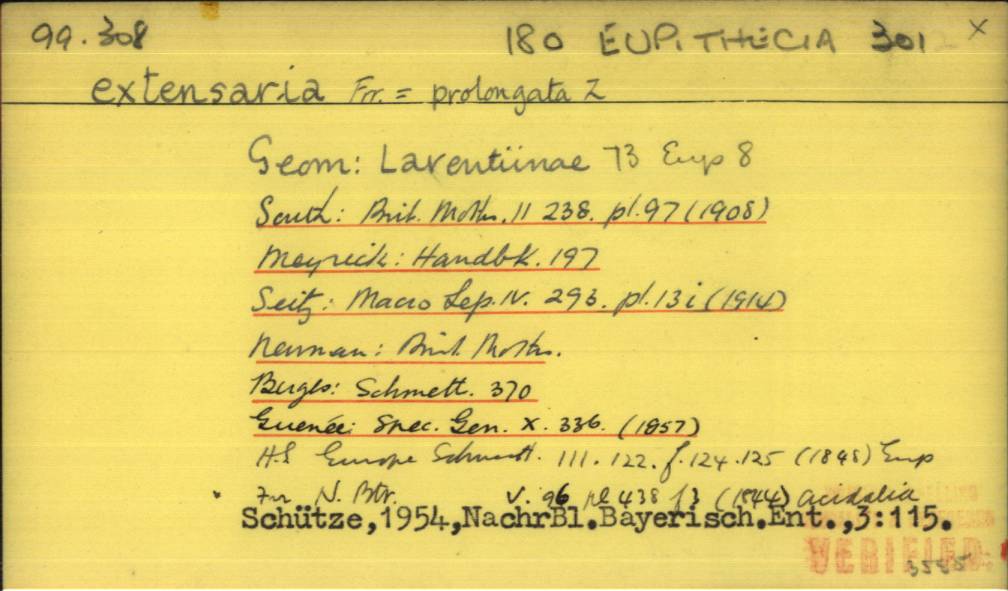 99.308 180 EUPITHECIA 301 X
extensaria Frr. = prolongata Z
Geom: Larentiinae 73 Eup 8
South: Brit. Moths. II 238. pl. 97 (1908)
Meyrick: Handbk. 197
Seitz: Macro Lep. IV. 293. pl. 13 i (1914)
Newman: Brit. Moths.
Berges: Schmett. 370
Guenée: Spec. Gen. X. 336. (1857)
H.S Europe Schmett. 111. 122. f. 124.125 (1848) Eup
Frr N. Btr. V. 96 pl 438 f3 (1844) acidalia
Schütze,1954,NachrBl.Bayerisch.Ent.,3:115.
VERIFIED: